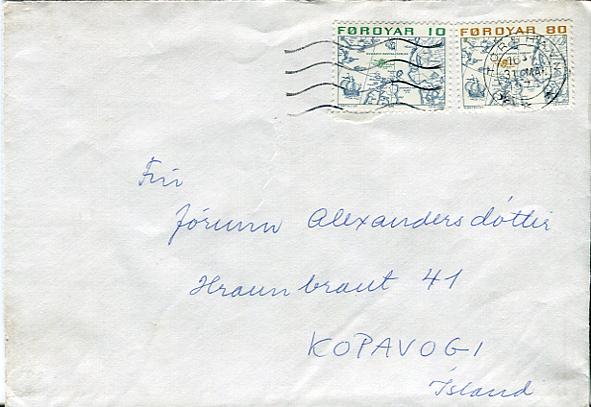 FØROYAR 10 FØROYAR 80
Frú
Jórunn Alexandersdóttir
Hraunbraut 41
KOPAVOGI
Ísland